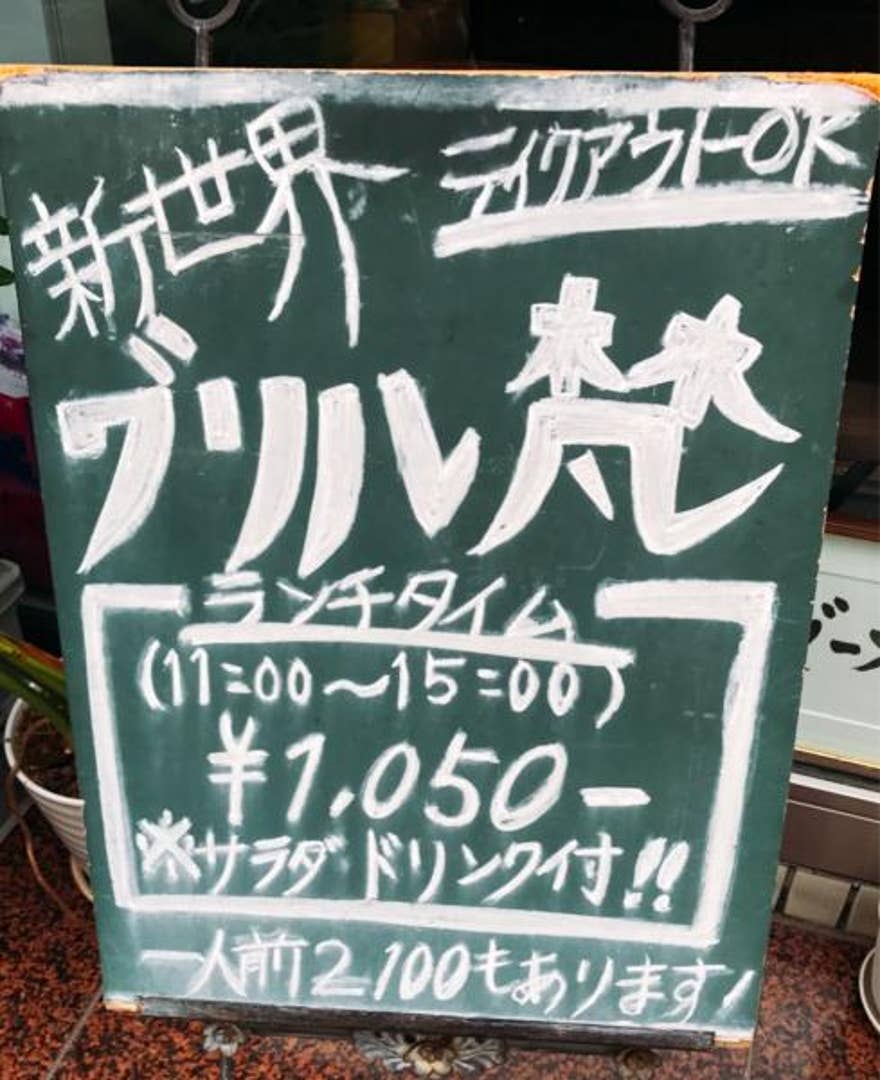 新世界
テイクアウトOK
グリル梵
ランチタイム
(11:00〜15:00)
¥1,050-
※サラダ ドリンク付!!
一人前2,100もあります!